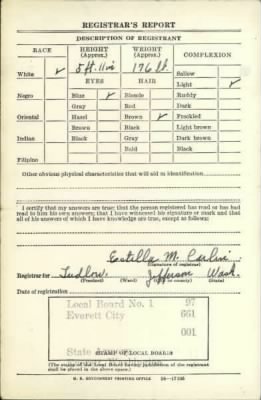 REGISTRAR'S REPORT
DESCRIPTION OF REGISTRANT
RACE HEIGHT (Approx.) WEIGHT (Approx.) COMPLEXION
White ✓ 5 ft. 11 in 176 lb Sallow
EYES HAIR Light ✓
Negro Blue ✓ Blonde Ruddy
Gray Red Dark
Oriental Hazel Brown ✓ Freckled
Brown Black Light brown
Indian Black Gray Dark brown
Bald Black
Filipino
Other obvious physical characteristics that will aid in identification
I certify that my answers are true; that the person registered has read or has had
read to him his own answers; that I have witnessed his signature or mark and that
all of his answers of which I have knowledge are true, except as follows:
Estilla M.
(Signature of registrar)
Registrar for Ludlow, Jefferson Wash.
(Precinct) (Ward) (City or county) (State)
Date of registration
Local Board No. 1 97
Everett City 661
001
State
STAMP OF LOCAL BOARD
(The stamp of the Local Board having jurisdiction of the registrant
shall be placed in the above space.)
U. S. GOVERNMENT PRINTING OFFICE 16—17105